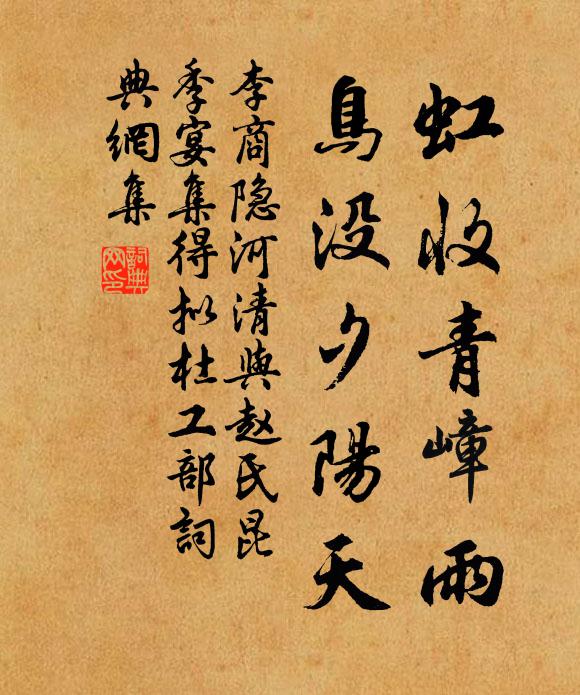 虹收青嶂雨
鳥没夕陽天
李商隐河清與趙氏昆
季宴集得拟杜工部詞
典網集
詞典
网印